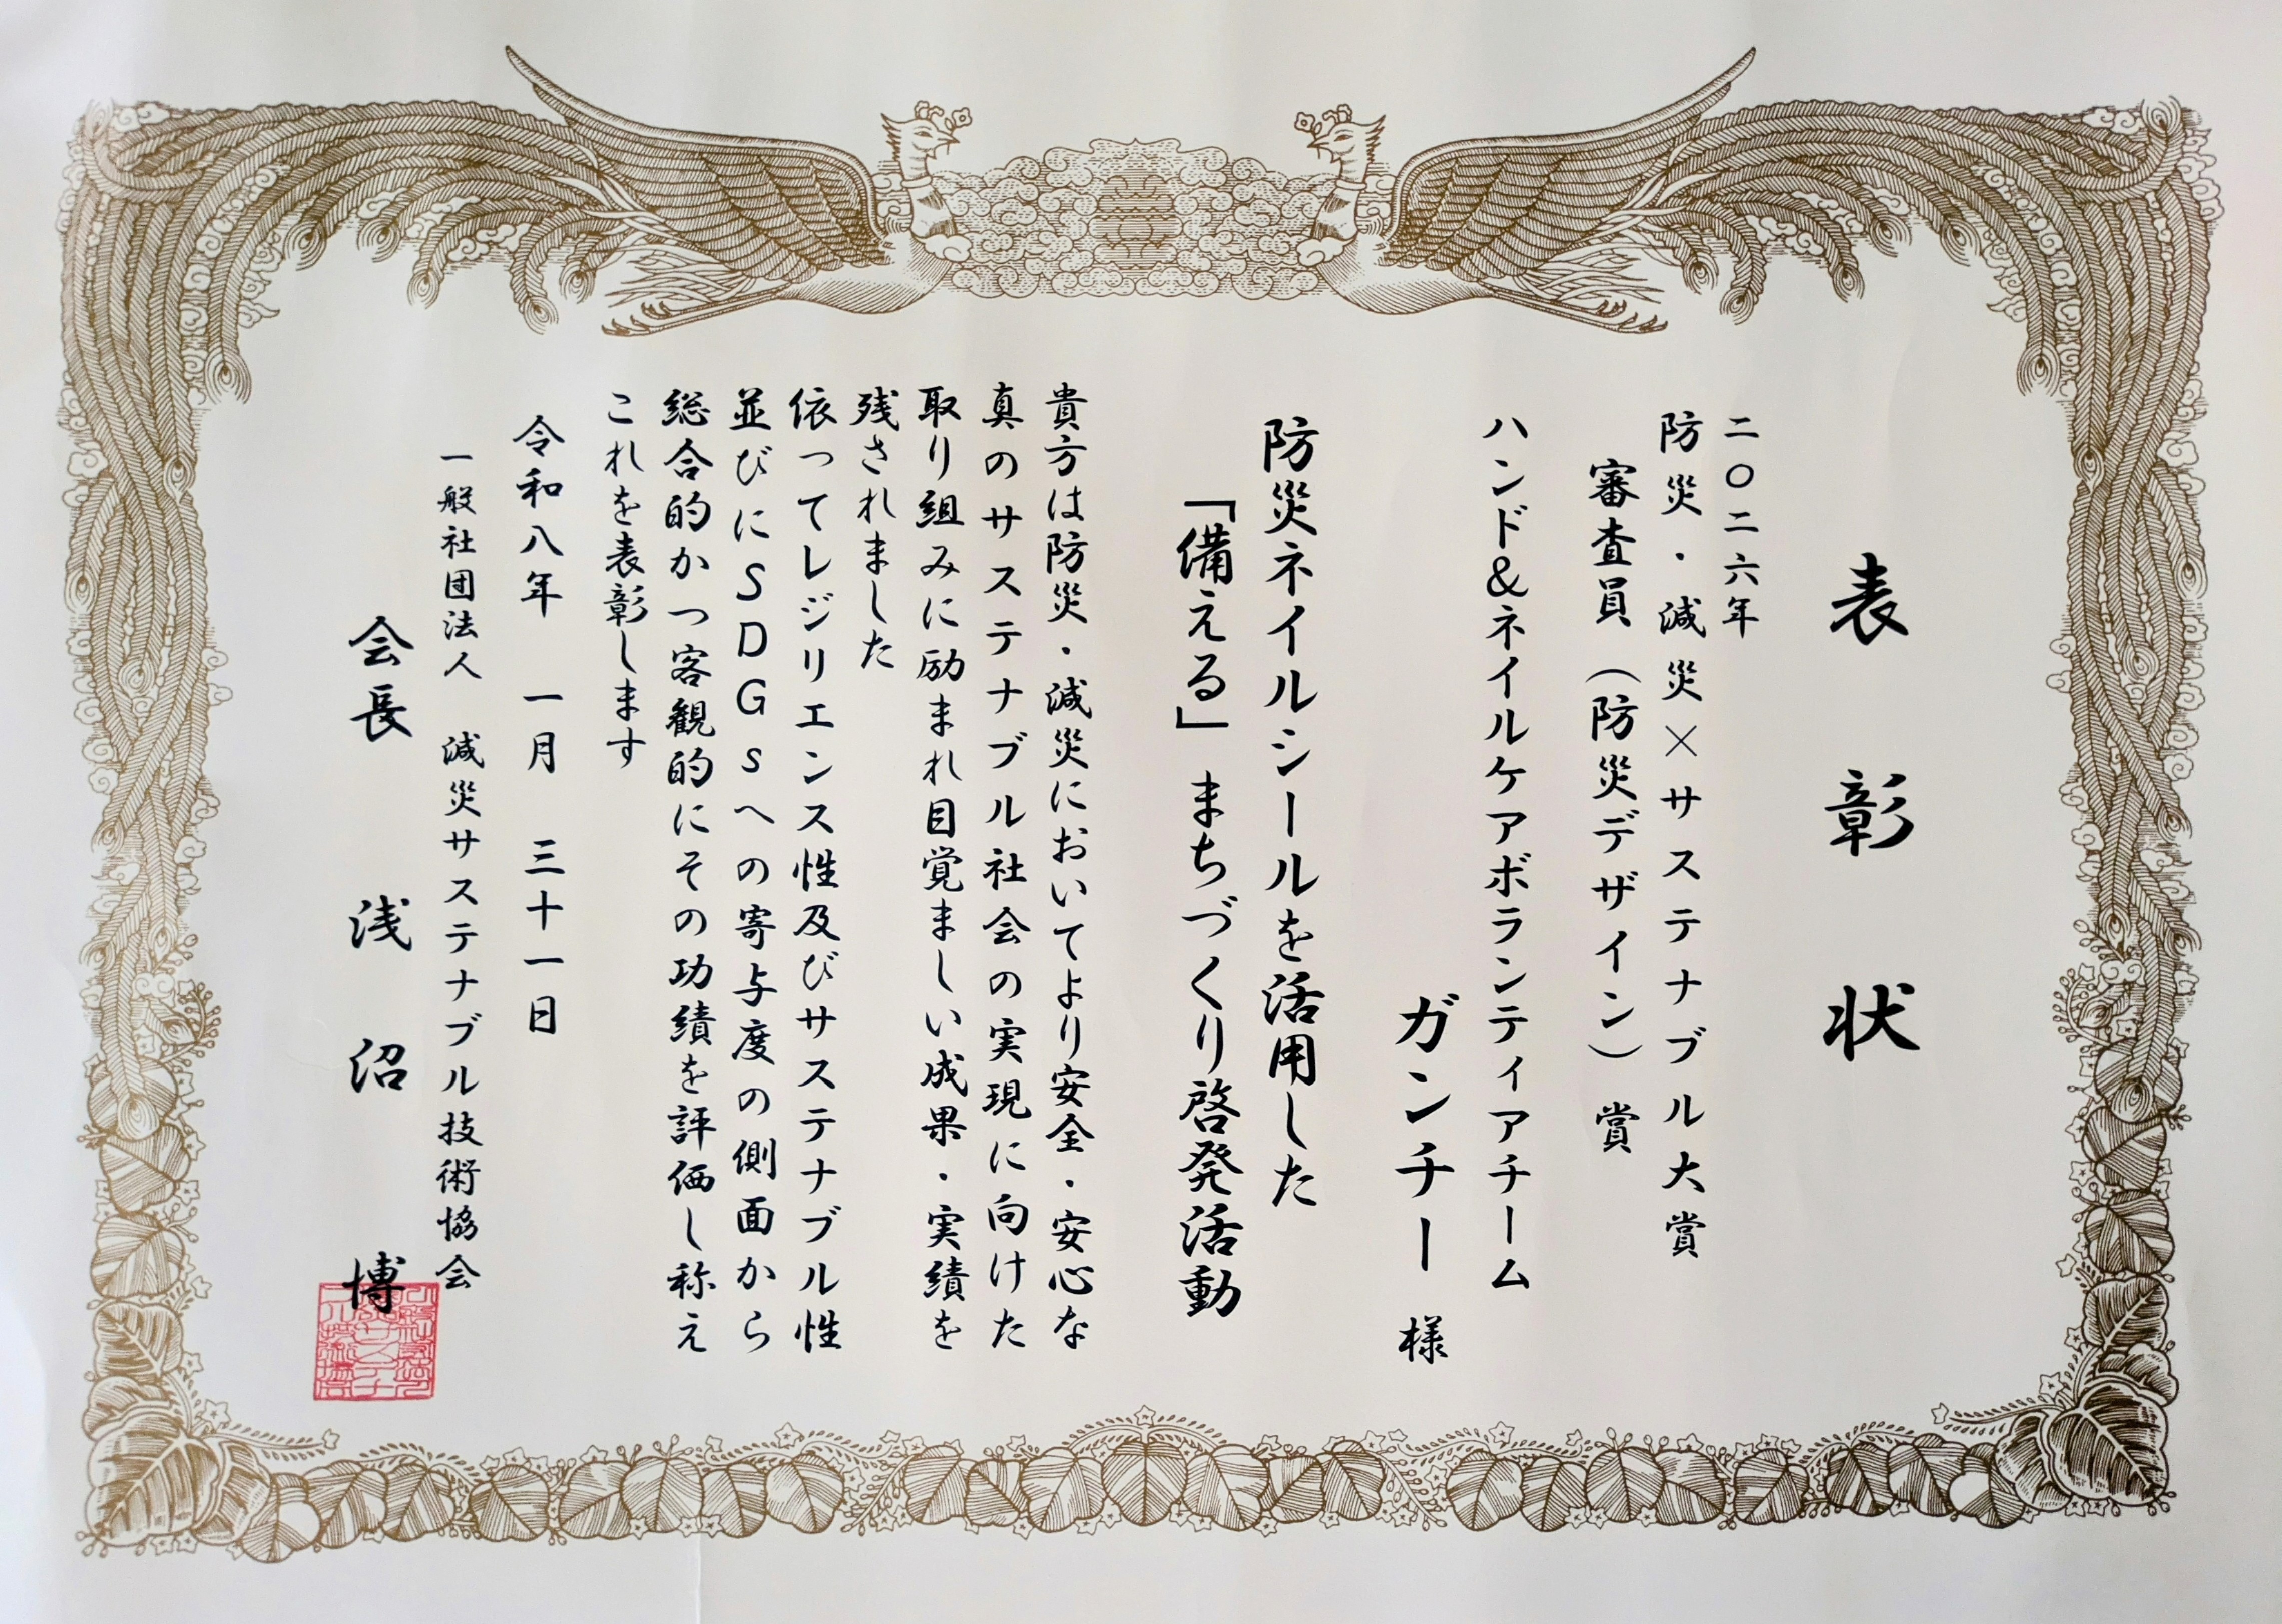 表彰状
二〇二六年
防災・減災×サステナブル大賞
審査員（防災デザイン）賞
ハンド&ネイルケアボランティアチーム
ガンチー 様
防災ネイルシールを活用した
「備える」まちづくり啓発活動
貴方は防災・減災においてより安全・安心な
真のサステナブル社会の実現に向けた
取り組みに励まれ目覚ましい成果・実績を
残されました
依ってレジリエンス性及びサステナブル性
並びにSDGsへの寄与度の側面から
総合的かつ客観的にその功績を評価し称え
これを表彰します
令和八年 一月 三十一日
一般社団法人 減災サステナブル技術協会
会長 浅沼 博